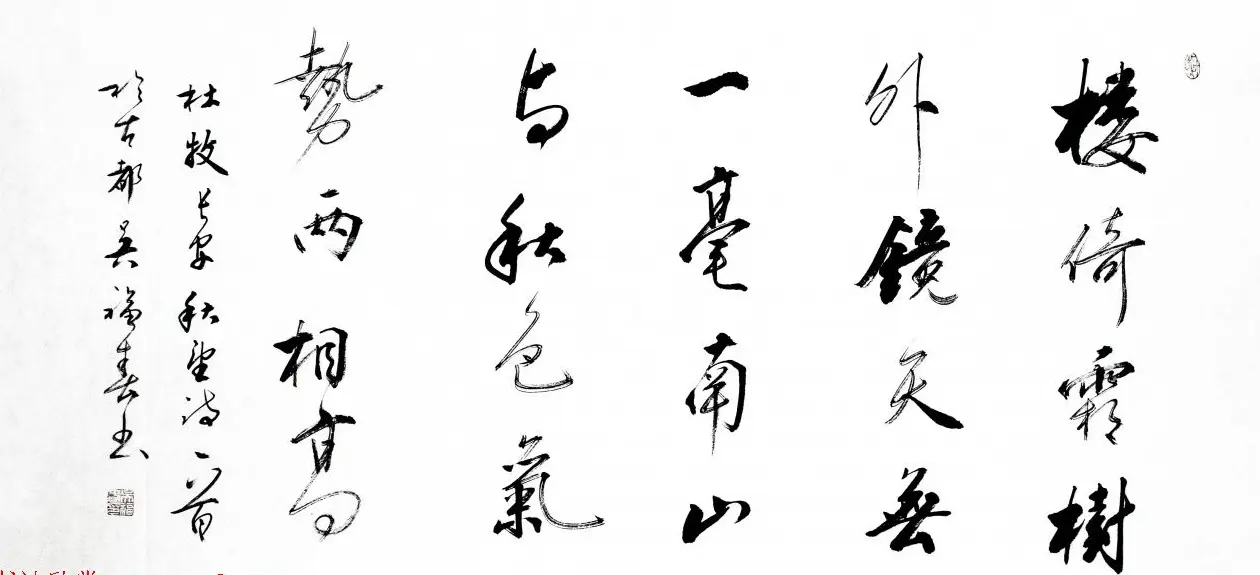 楼倚霜樹
外鏡天無
一毫南山
与秋色氣
勢兩相高
杜牧长安秋望詩一首
於古都吴福春书